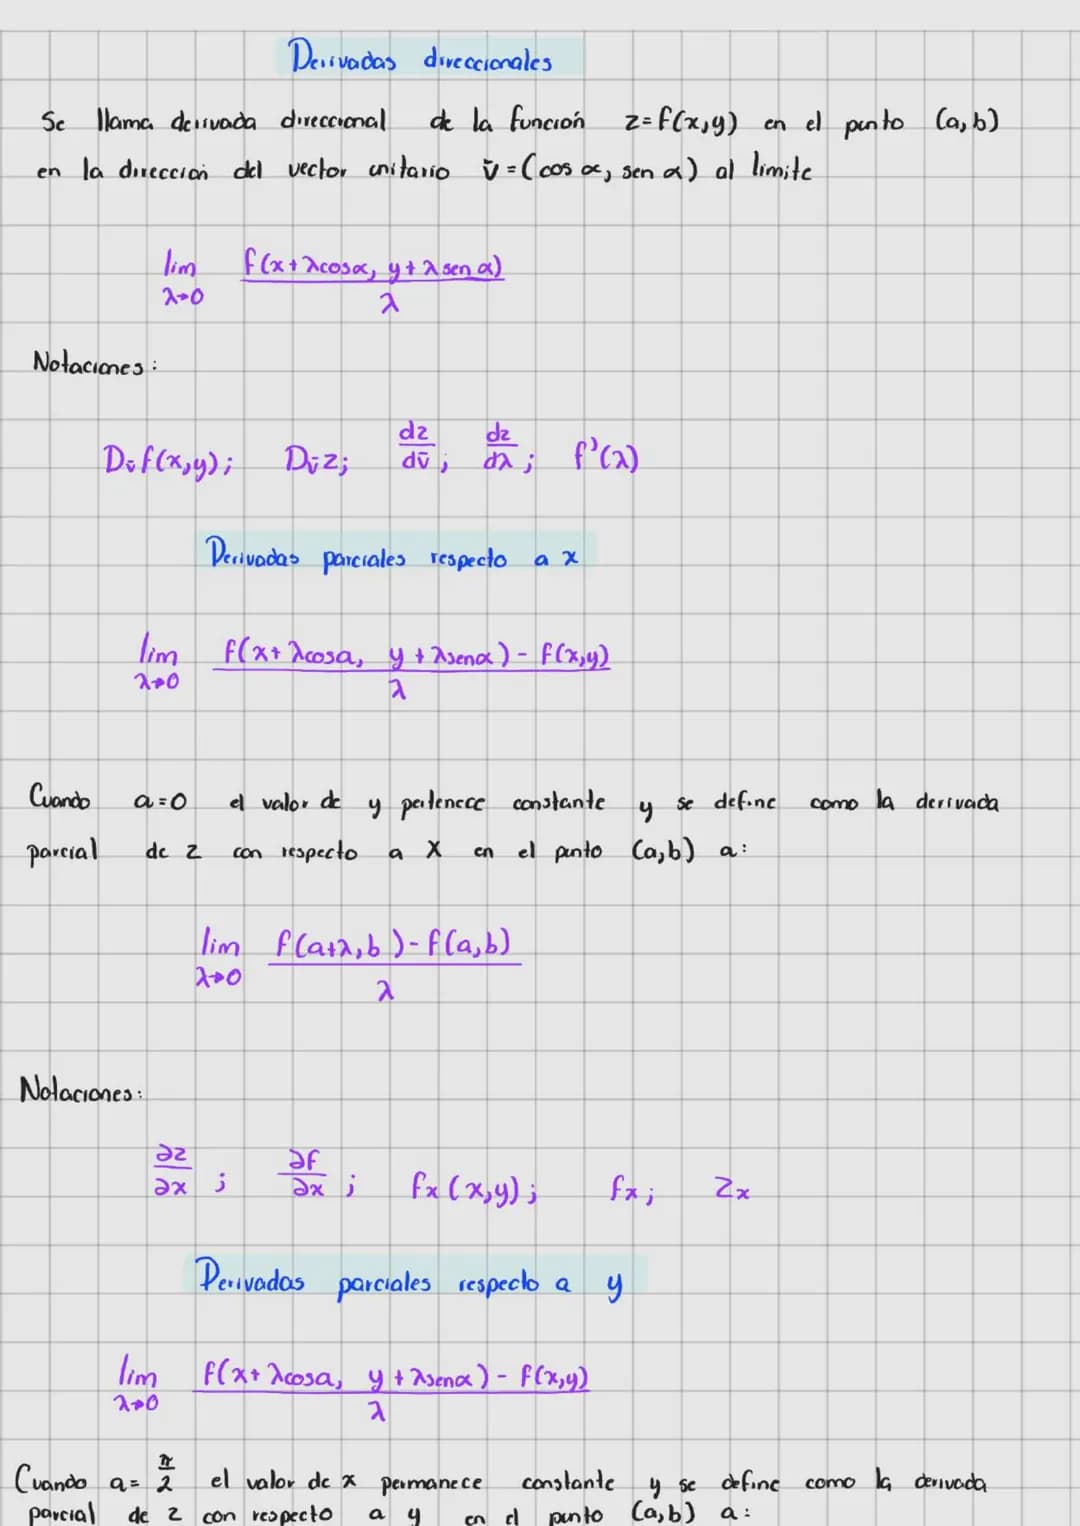 Derivadas direccionales
Se llama derivada direccional de la función z=f(x,y) en el punto (a,b)
en la dirección del vector unitario v̄=(cos α, sen α) al limite
lim f(x+λcosα, y+λ sen α)
λ→0 λ
Notaciones:
dz dz
Dv̄f(x,y); Dv̄z; dv̄; dλ; f'(λ)
Derivadas parciales respecto a x
lim f(x+λcosa, y+λsenα)-f(x,y)
λ→0 λ
Cuando a=0 el valor de y pertenece constante y se define como la derivada
parcial de z con respecto a X en el punto (a,b) a:
lim f(a+λ,b)-f(a,b)
λ→0 λ
Notaciones:
∂z ∂f
∂x ; ∂x ; fx(x,y); fx; Zx
Derivadas parciales respecto a y
lim f(x+λcosa, y+λsenα)-f(x,y)
λ→0 λ
Cuando a=π/2 el valor de x permanece constante y se define como la derivada
parcial de z con respecto a y en el punto (a,b) a: